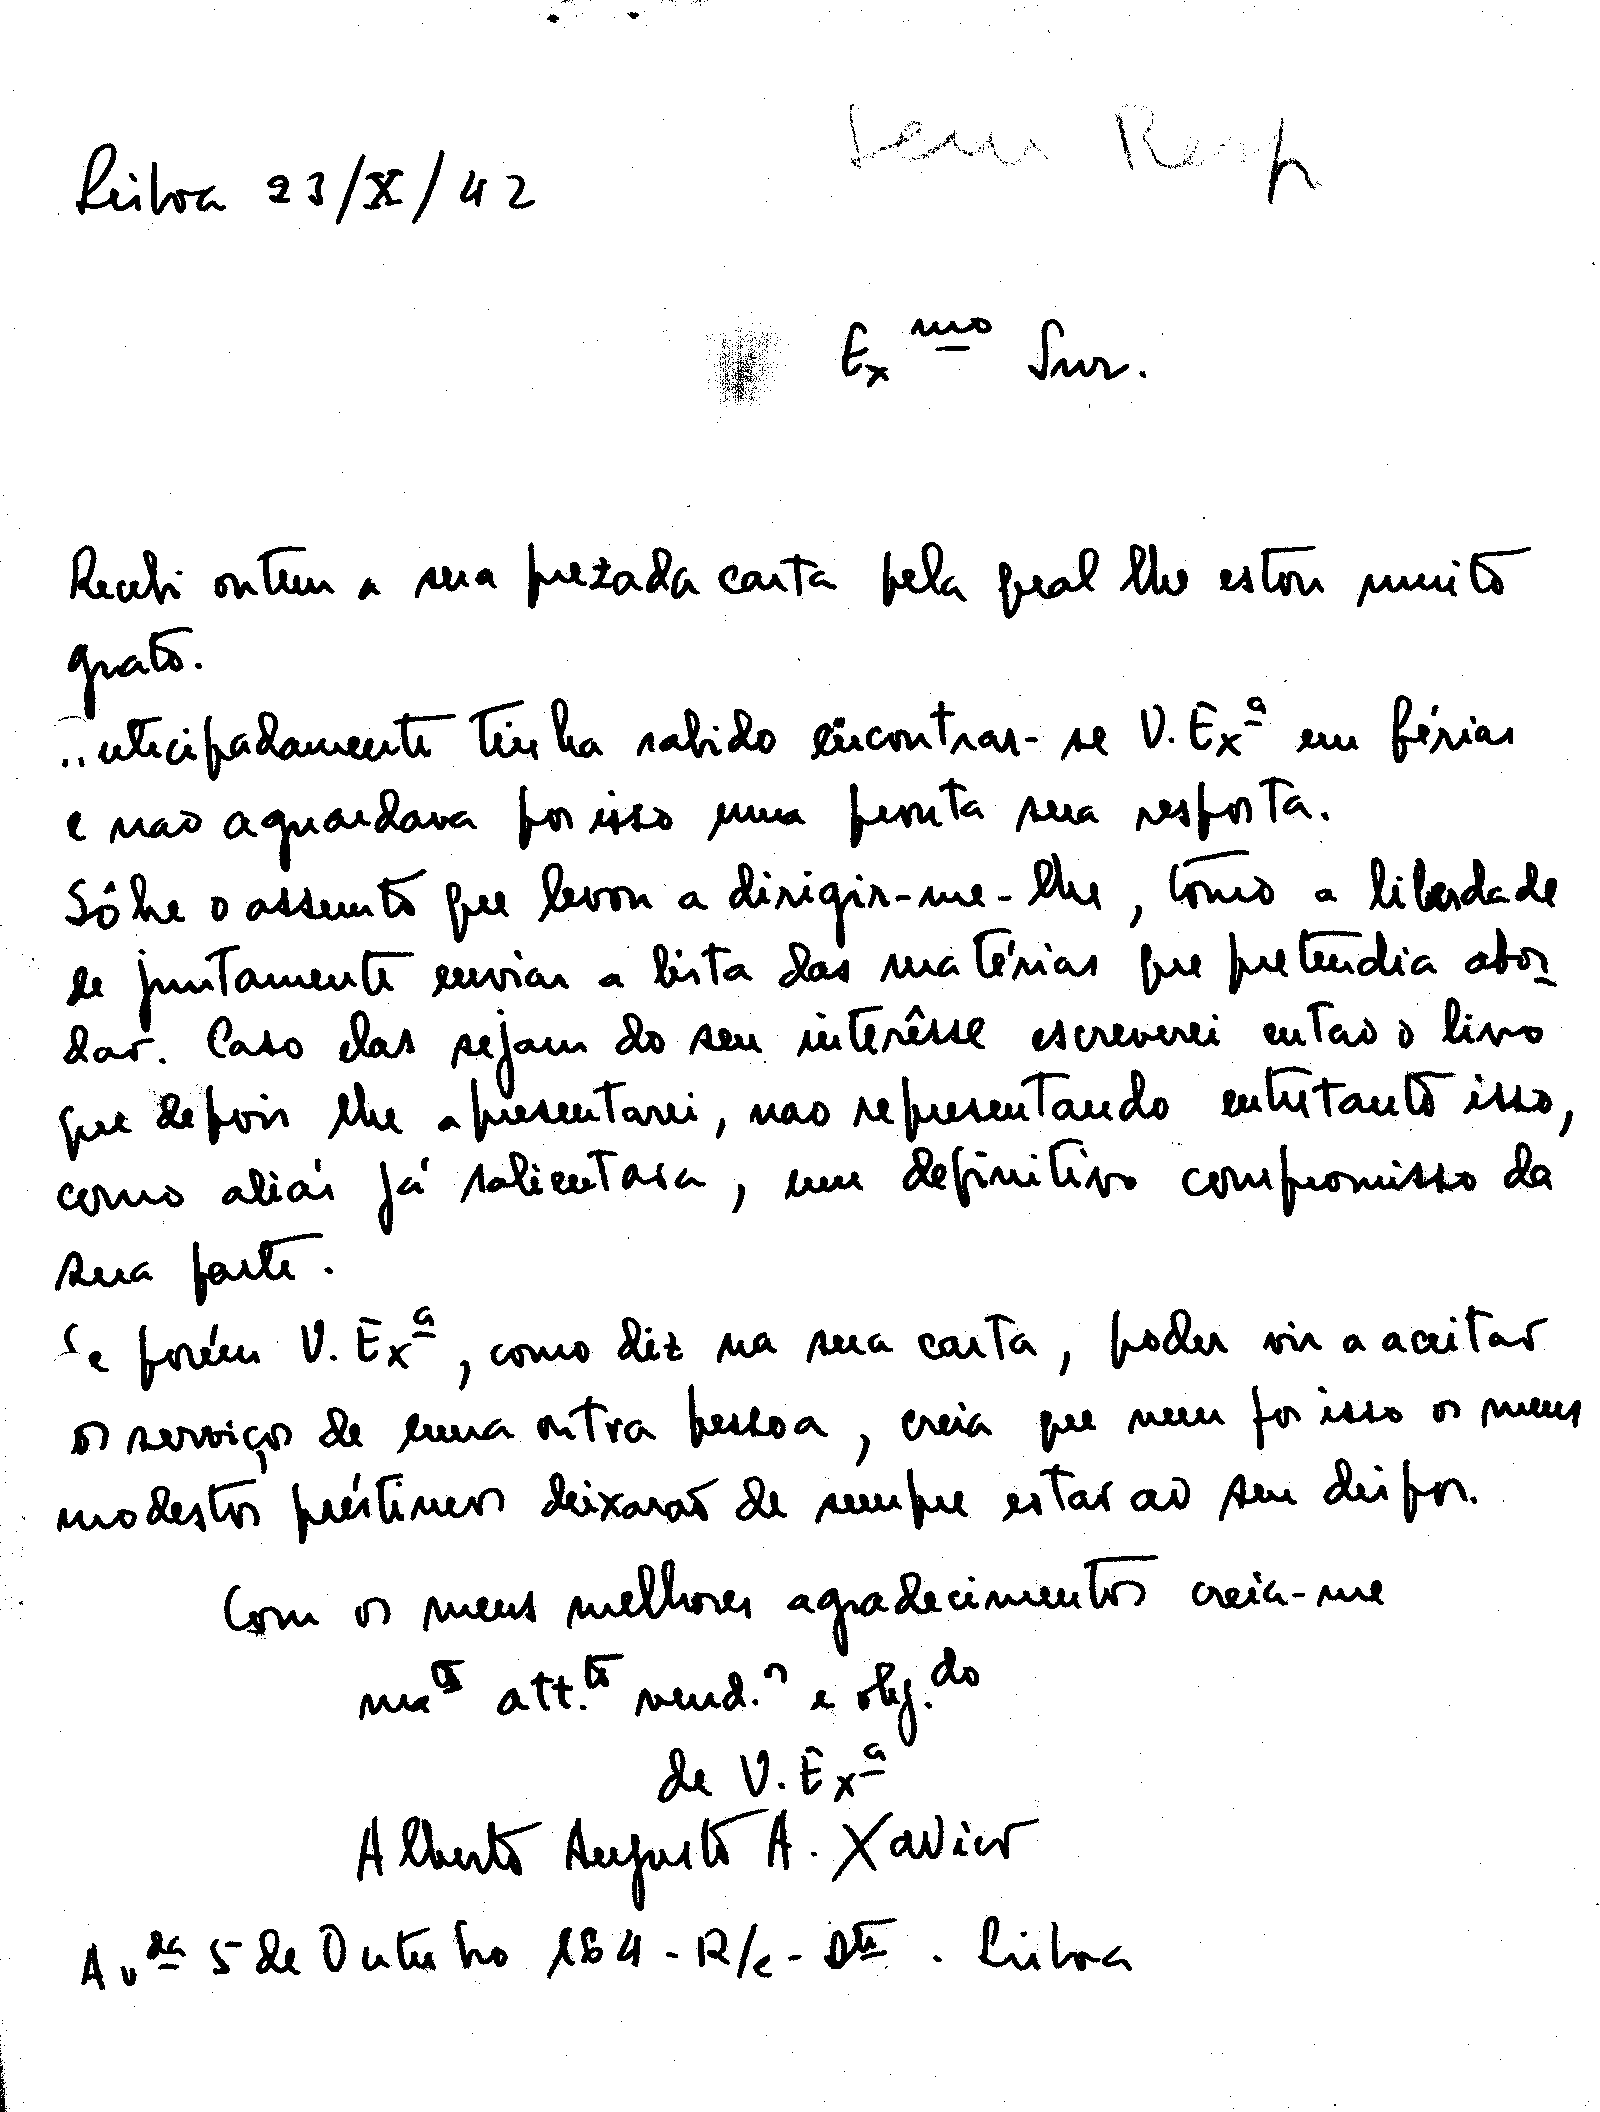 Sem Resp
Lisboa 23/X/42
Ex.mo Snr.
Recebi ontem a sua prezada carta pela qual lhe estou muito
grato.
Antecipadamente tinha sabido encontrar-se V. Exª em férias
e nao aguardava por isso uma pronta sua resposta.
Sôbre o assunto que levou a dirigir-me-lhe, tomo a liberdade
de juntamente enviar a lista das matérias que pretendia abor-
dar. Caso elas sejam do seu interêsse escreverei entao o livro
que depois lhe apresentarei, nao representando entretanto isso,
como aliás já salientara, um definitivo compromisso da
sua parte.
Se porém V. Exª, como diz na sua carta, poder vir a aceitar
os serviços de uma outra pessoa, creia que nem por isso os meus
modestos préstimos deixarao de sempre estar ao seu dispor.
Com os meus melhores agradecimentos creia-me
mto att.te vend.or e obg.do
de V. Exª
Alberto Augusto A. Xavier
Av.da 5 de Outubro 164-R/c-Dte. Lisboa